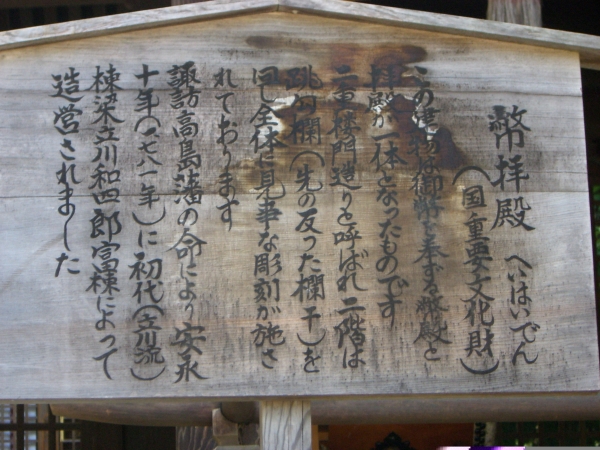 幣拝殿 へいはいでん
(国重要文化財)
この建物は御幣を奉ずる幣殿と
拝殿が一体となったものです
二重楼門造りと呼ばれ二階は
跳勾欄(先の反った欄干)を
回し全体に見事な彫刻が施さ
れております
諏訪高島藩の命により安永
十年(一七八一年)に初代(立川流)
棟梁立川和四郎富棟によって
造営されました